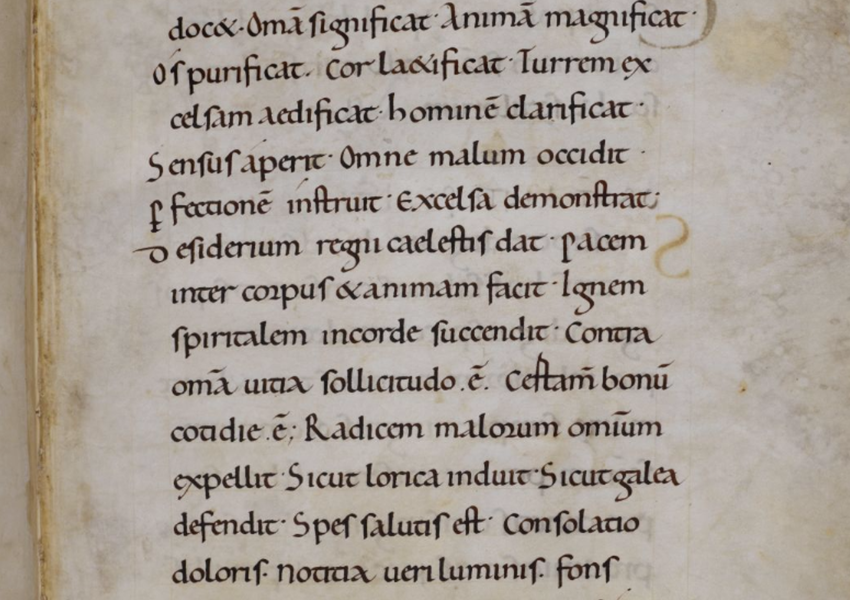 doc&· Omā significat· Animā magnificat·
Os purificat. Cor la&ificat· Turrem ex
celsam aedificat· hominē clarificat·
Sensus aperit· Omne malum occidit·
ꝑfectionē instruit· Excelsa demonstrat;
Desiderium regni caelestis dat· pacem
inter corpus & animam facit· Ignem
spiritalem incorde succendit· Contra
omā uitia sollicitudo .ē. Cestam̄ bonū
cotidie .ē; Radicem malorum omīum
expellit· Sicut lorica induit· Sicut galea
defendit· Spes salutis est· Consolatio
doloris. notitia ueri luminis. fons